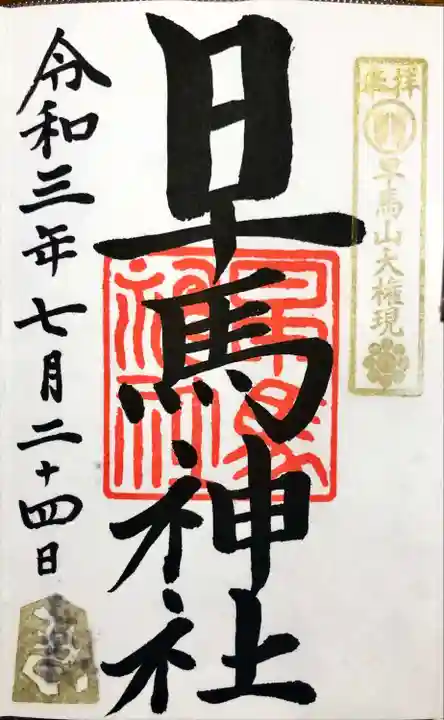 奉拝
早馬山大権現
早馬神社
早馬神社
令和三年七月二十四日